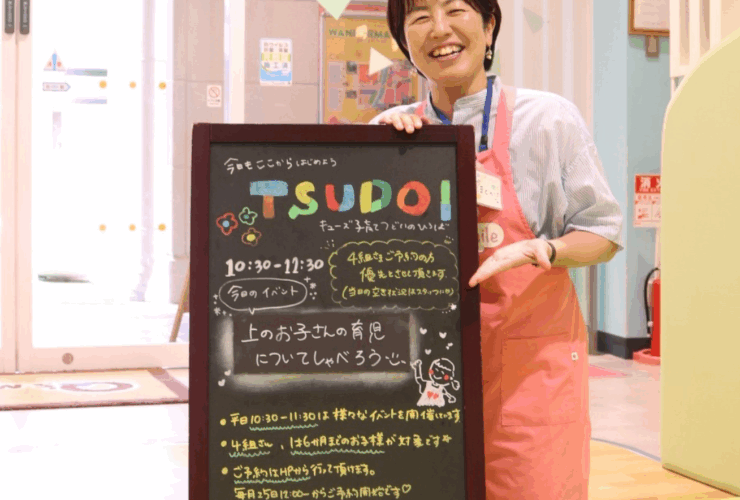 今日もここからはじめよう
TSUDOI
キューズ子育てつどいのひろば
10:30-11:30
4組さまご予約の方
優先とさせて頂きます
今日のイベント
上のお子さんの育児
についてしゃべろう
• 平日10:30-11:30は様々なイベントを開催しています
• 4組さん、は6か月までのお子様が対象です
• ご予約はHPから行って頂けます。
毎月25日12:00からご予約開始です♡